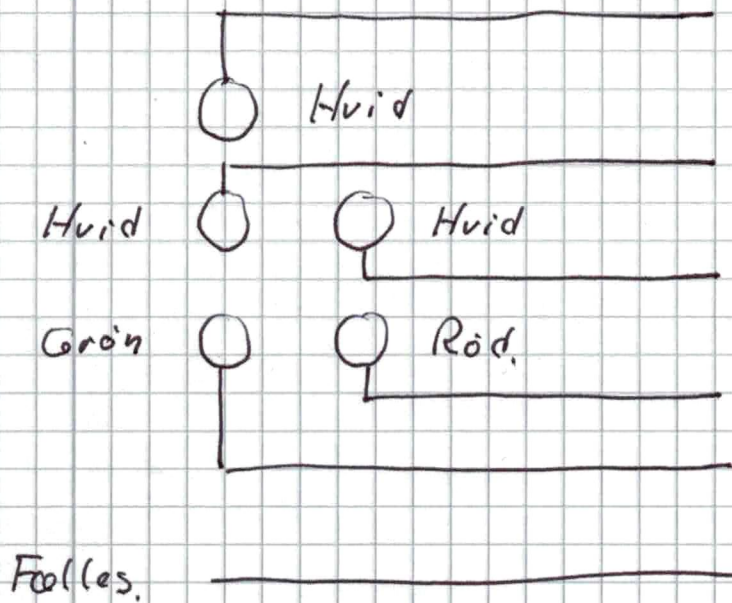 Hvid
Hvid Hvid
Grön Röd.
Fælles.